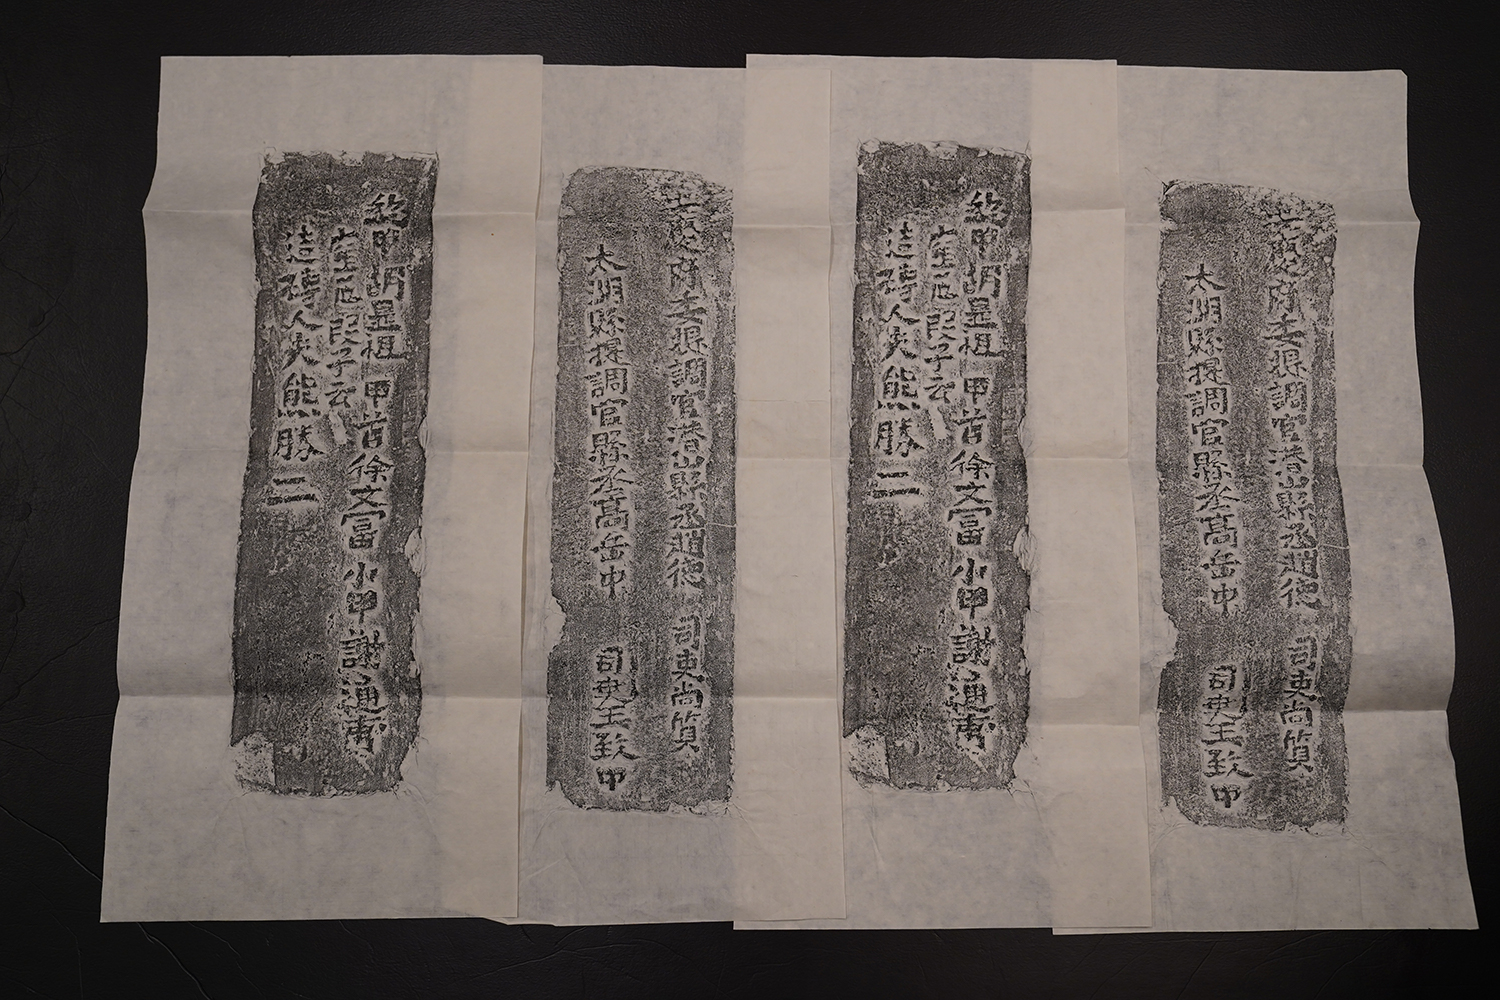 安慶府委提調官潜山縣丞趙德 司吏尚質
太湖縣提調官縣丞高岳中 司吏王致中
緫甲胡昰祖 甲首徐文富 小甲謝通甫
窑匠段子云
造磚人夫熊勝二
安慶府委提調官潜山縣丞趙德 司吏尚質
太湖縣提調官縣丞高岳中 司吏王致中
緫甲胡昰祖 甲首徐文富 小甲謝通甫
窑匠段子云
造磚人夫熊勝二